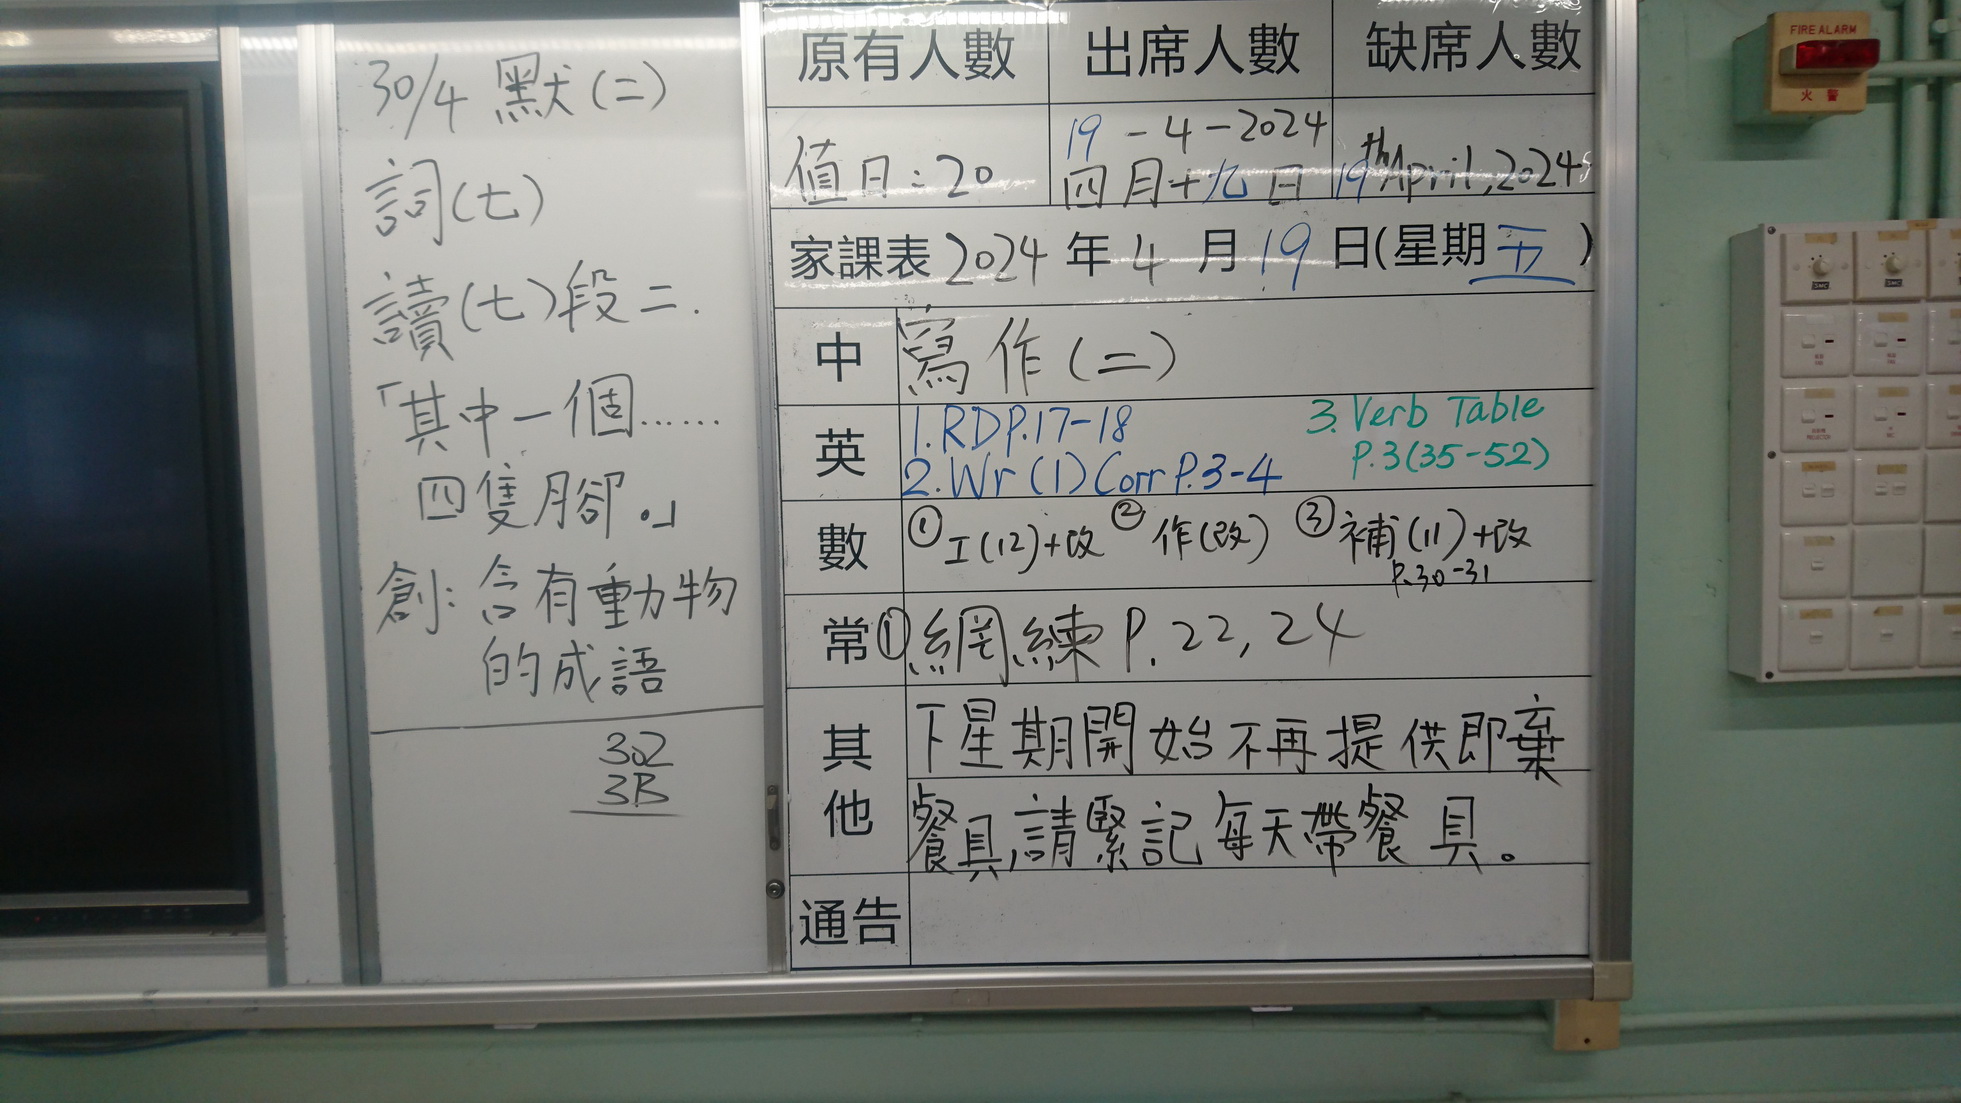 30/4 默(二)
詞(七)
讀(七)段二.
「其中一個……
四隻腳。」
創:含有動物
的成語
302
3B
原有人數 出席人數 缺席人數
值日:20
19-4-2024
四月十九日
19th April, 2024
家課表 2024 年 4 月 19 日(星期 五 )
中 寫作(二)
英 1. RD P.17-18
2. Wr (1) Corr P.3-4
3. Verb Table
P.3(35-52)
數 ① 工(12)+改 ② 作(改) ③ 補(11)+改
P.30-31
常 ① 網練 P.22,24
其他 下星期開始不再提供即棄
餐具,請緊記每天帶餐具。
通告
FIRE ALARM
火警